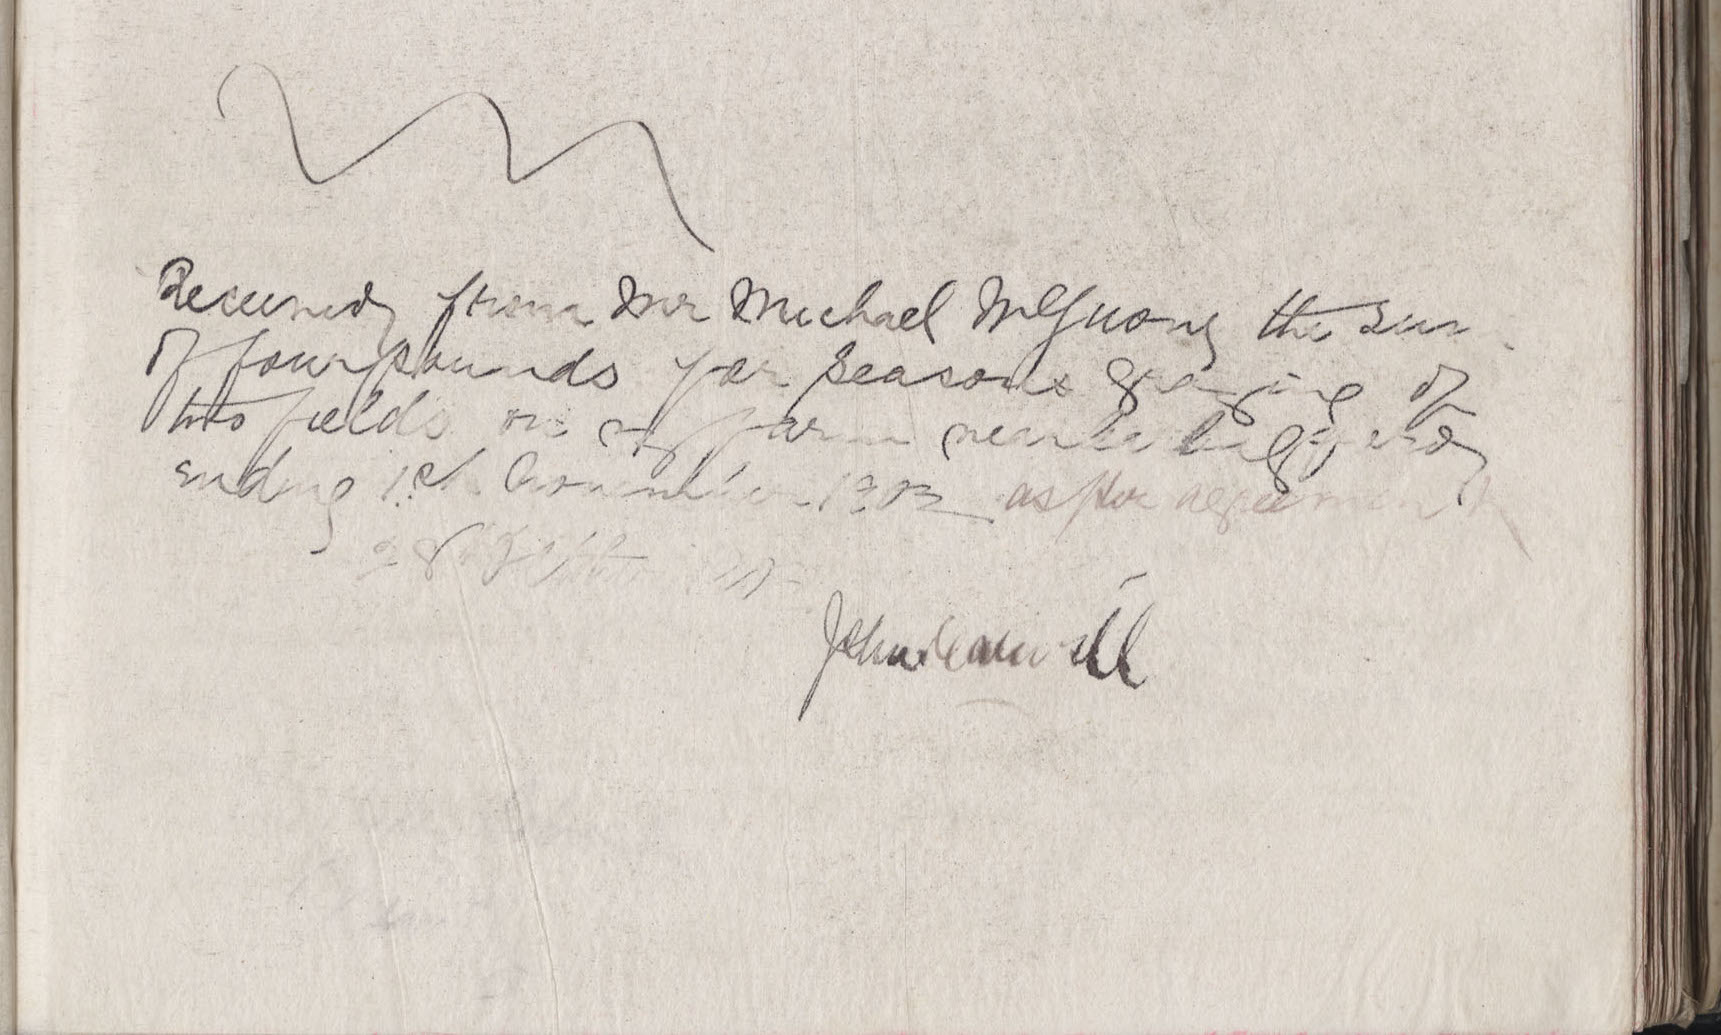 Received from Mr Michael McGuone the sum
of four pounds for seasons grazing of
two fields on my farm near
ending 1st November 1903 as per agreement
28
John Caulwill